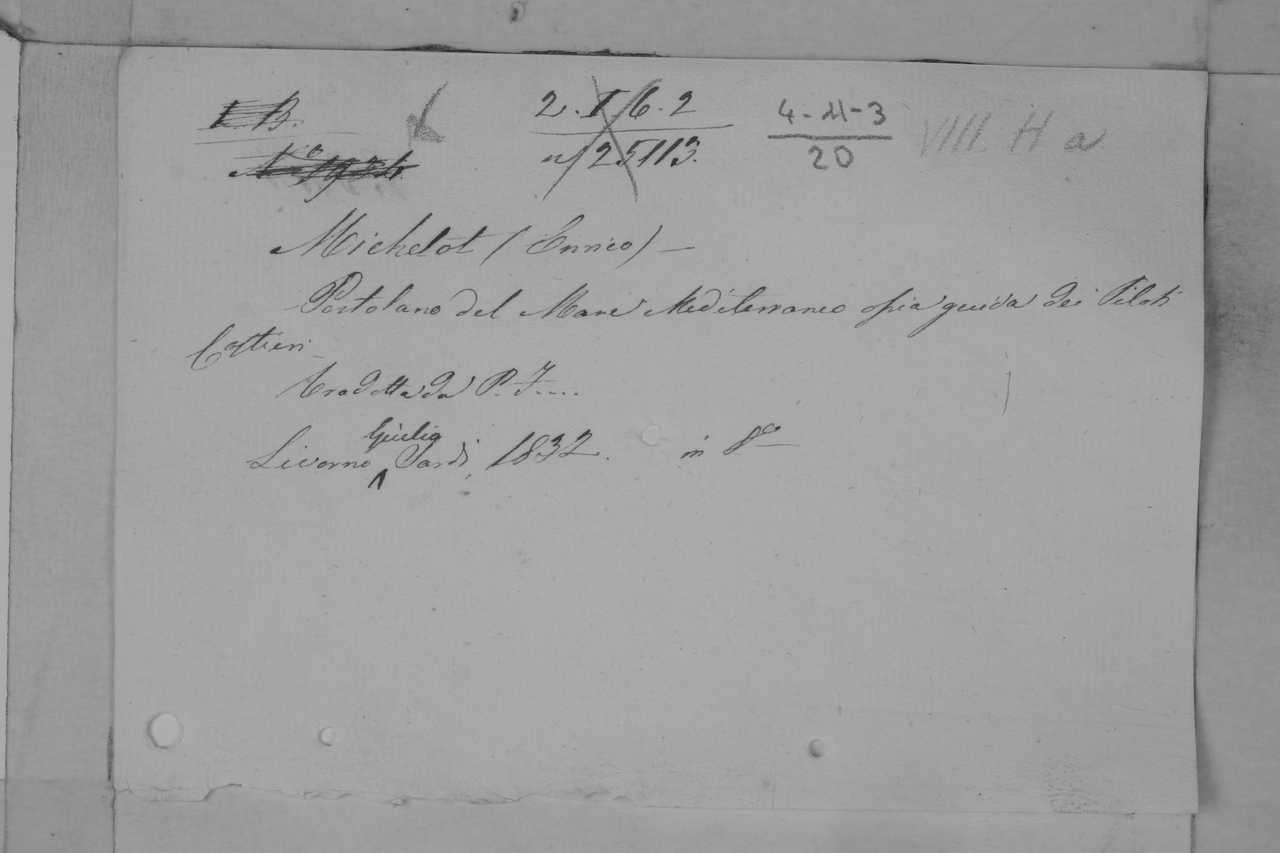 B.
2.I.6.2
4-11-3
VIII. H a
n/25113.
20
Michelot (Enrico) —
Portolano del Mare Mediterraneo ossia guida dei Piloti
Costieri
tradotta da P. F....
Livorno Giulio Sardi, 1832. in 8º